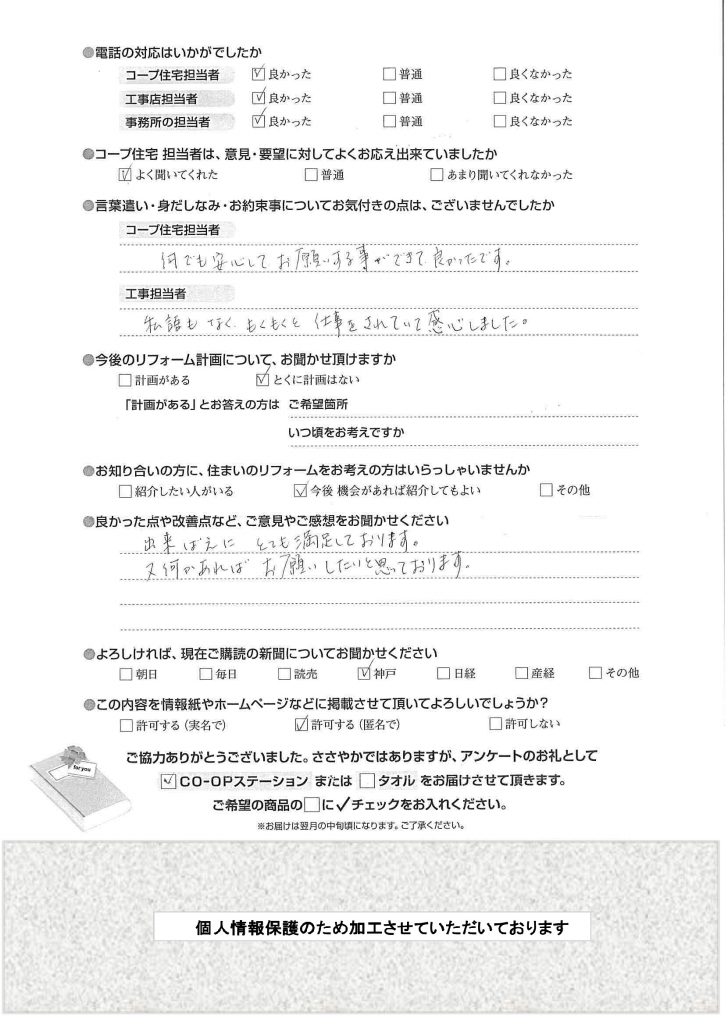 ●電話の対応はいかがでしたか
コープ住宅担当者 ☑良かった □普通 □良くなかった
工事店担当者 ☑良かった □普通 □良くなかった
事務所の担当者 ☑良かった □普通 □良くなかった
●コープ住宅 担当者は、意見・要望に対してよくお応え出来ていましたか
☑よく聞いてくれた □普通 □あまり聞いてくれなかった
●言葉遣い・身だしなみ・お約束事についてお気付きの点は、ございませんでしたか
コープ住宅担当者
何でも安心してお願いする事ができて良かったです。
工事担当者
私語もなく、もくもくと仕事をされていて感心しました。
●今後のリフォーム計画について、お聞かせ頂けますか
□計画がある ☑とくに計画はない
「計画がある」とお答えの方は ご希望箇所
いつ頃をお考えですか
●お知り合いの方に、住まいのリフォームをお考えの方はいらっしゃいませんか
□紹介したい人がいる ☑今後 機会があれば紹介してもよい □その他
●良かった点や改善点など、ご意見やご感想をお聞かせください
出来ばえに とても満足しております。
又何かあれば お願いしたいと思っております。
●よろしければ、現在ご購読の新聞についてお聞かせください
□朝日 □毎日 □読売 ☑神戸 □日経 □産経 □その他
●この内容を情報紙やホームページなどに掲載させて頂いてよろしいでしょうか?
□許可する(実名で) ☑許可する(匿名で) □許可しない
for you
ご協力ありがとうございました。ささやかではありますが、アンケートのお礼として
☑CO-OPステーション または □タオル をお届けさせて頂きます。
ご希望の商品の□に✓チェックをお入れください。
※お届けは翌月の中旬頃になります。ご了承ください。
個人情報保護のため加工させていただいております